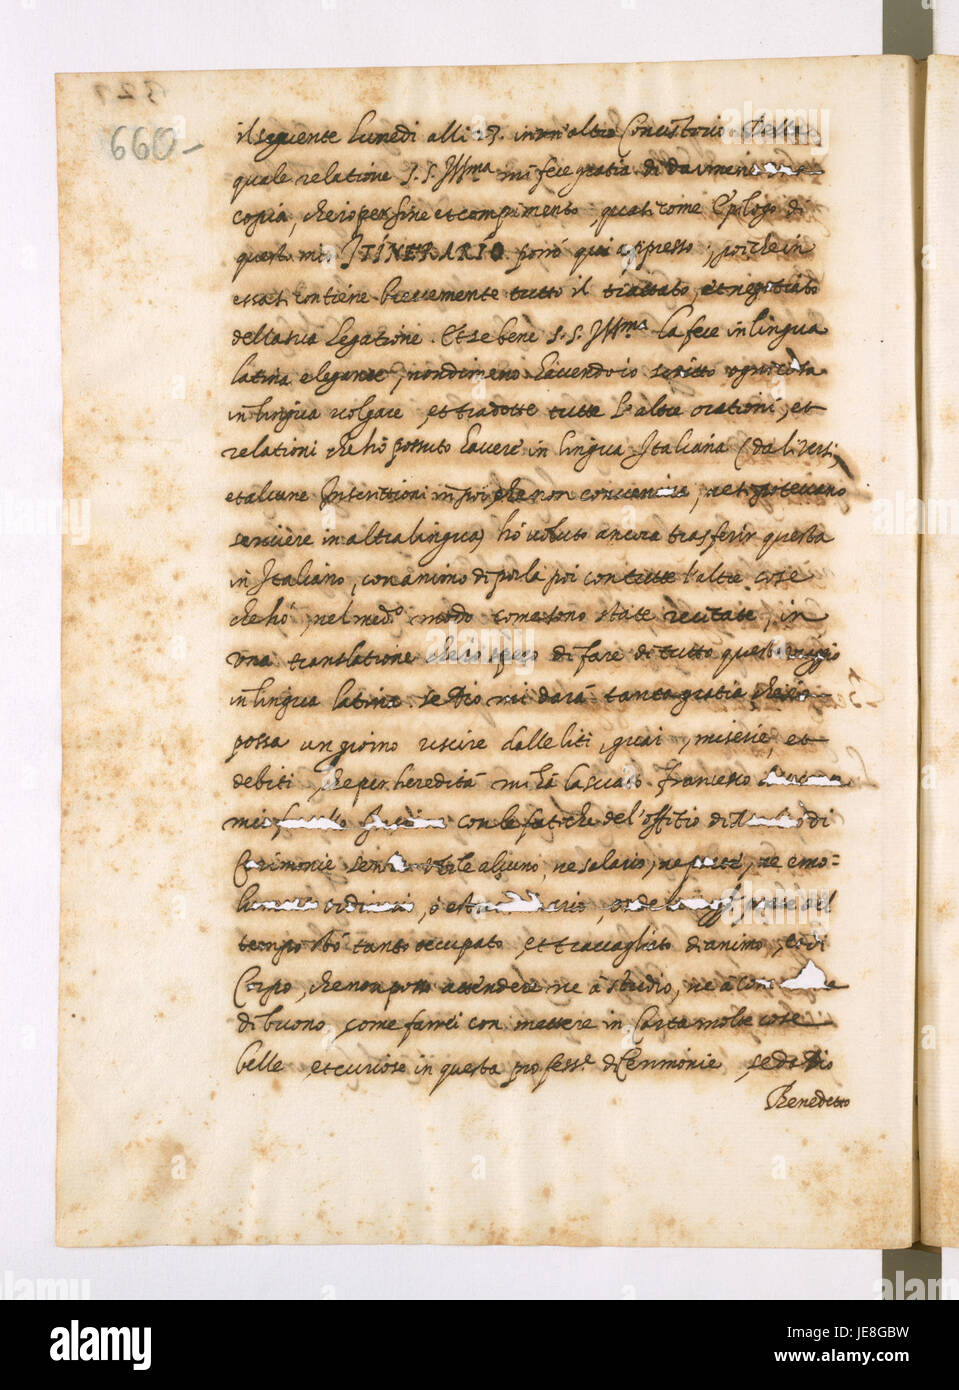 321
660-
il seguente Lunedi alli 23. in un'altro Concistorio. Della
quale relatione S. S. Illma mi fece gratia di darmene
copia, che io per fine et compimento, quasi come Epilogo di
questo mio ITINERARIO porrò qui appresso; poiche in
essa si contiene brevemente tutto il trattato, et negotiato
della sua Legatione. Et se bene S. S. Illma la fece in lingua
latina elegante, nondimeno havendo io scritto ogni cosa
in lingua volgare, et tradotte tutte l'altre orationi, et
relationi che hò possuto havere in lingua Italiana (da li versi,
et alcune Inscrittioni in poi, che non conveniva, ne si potevano
scrivere in altra lingua) hò voluto ancora trasferir questa
in Italiano, con animo di porla poi con tutte l'altre cose
che hò, nel medo modo come sono state recitate, in
una translatione che io spero di fare di tutto questo viaggio
in lingua latina se Dio mi darà tanta gratia che io
possa un giorno uscire dalle liti, guai, miserie, et
debiti, che per heredità mi hà lasciato Francesco
mio fratello con le fatiche de l'offitio di di
Cerimonie senza utile alcuno, ne salario, ne parte, ne emo=
lumento ordinario, ò estraordinario, onde la maggr parte del
tempo stò tanto occupato, et travagliato di animo, et di
Corpo, che non posso attendere ne à studio, ne à
di buono, come farrei con mettere in Carta molte cose
belle, et curiose in questa professe di Cerimonie, se da Dio
Benedetto
alamy
Image ID: JE8GBW
www.alamy.com